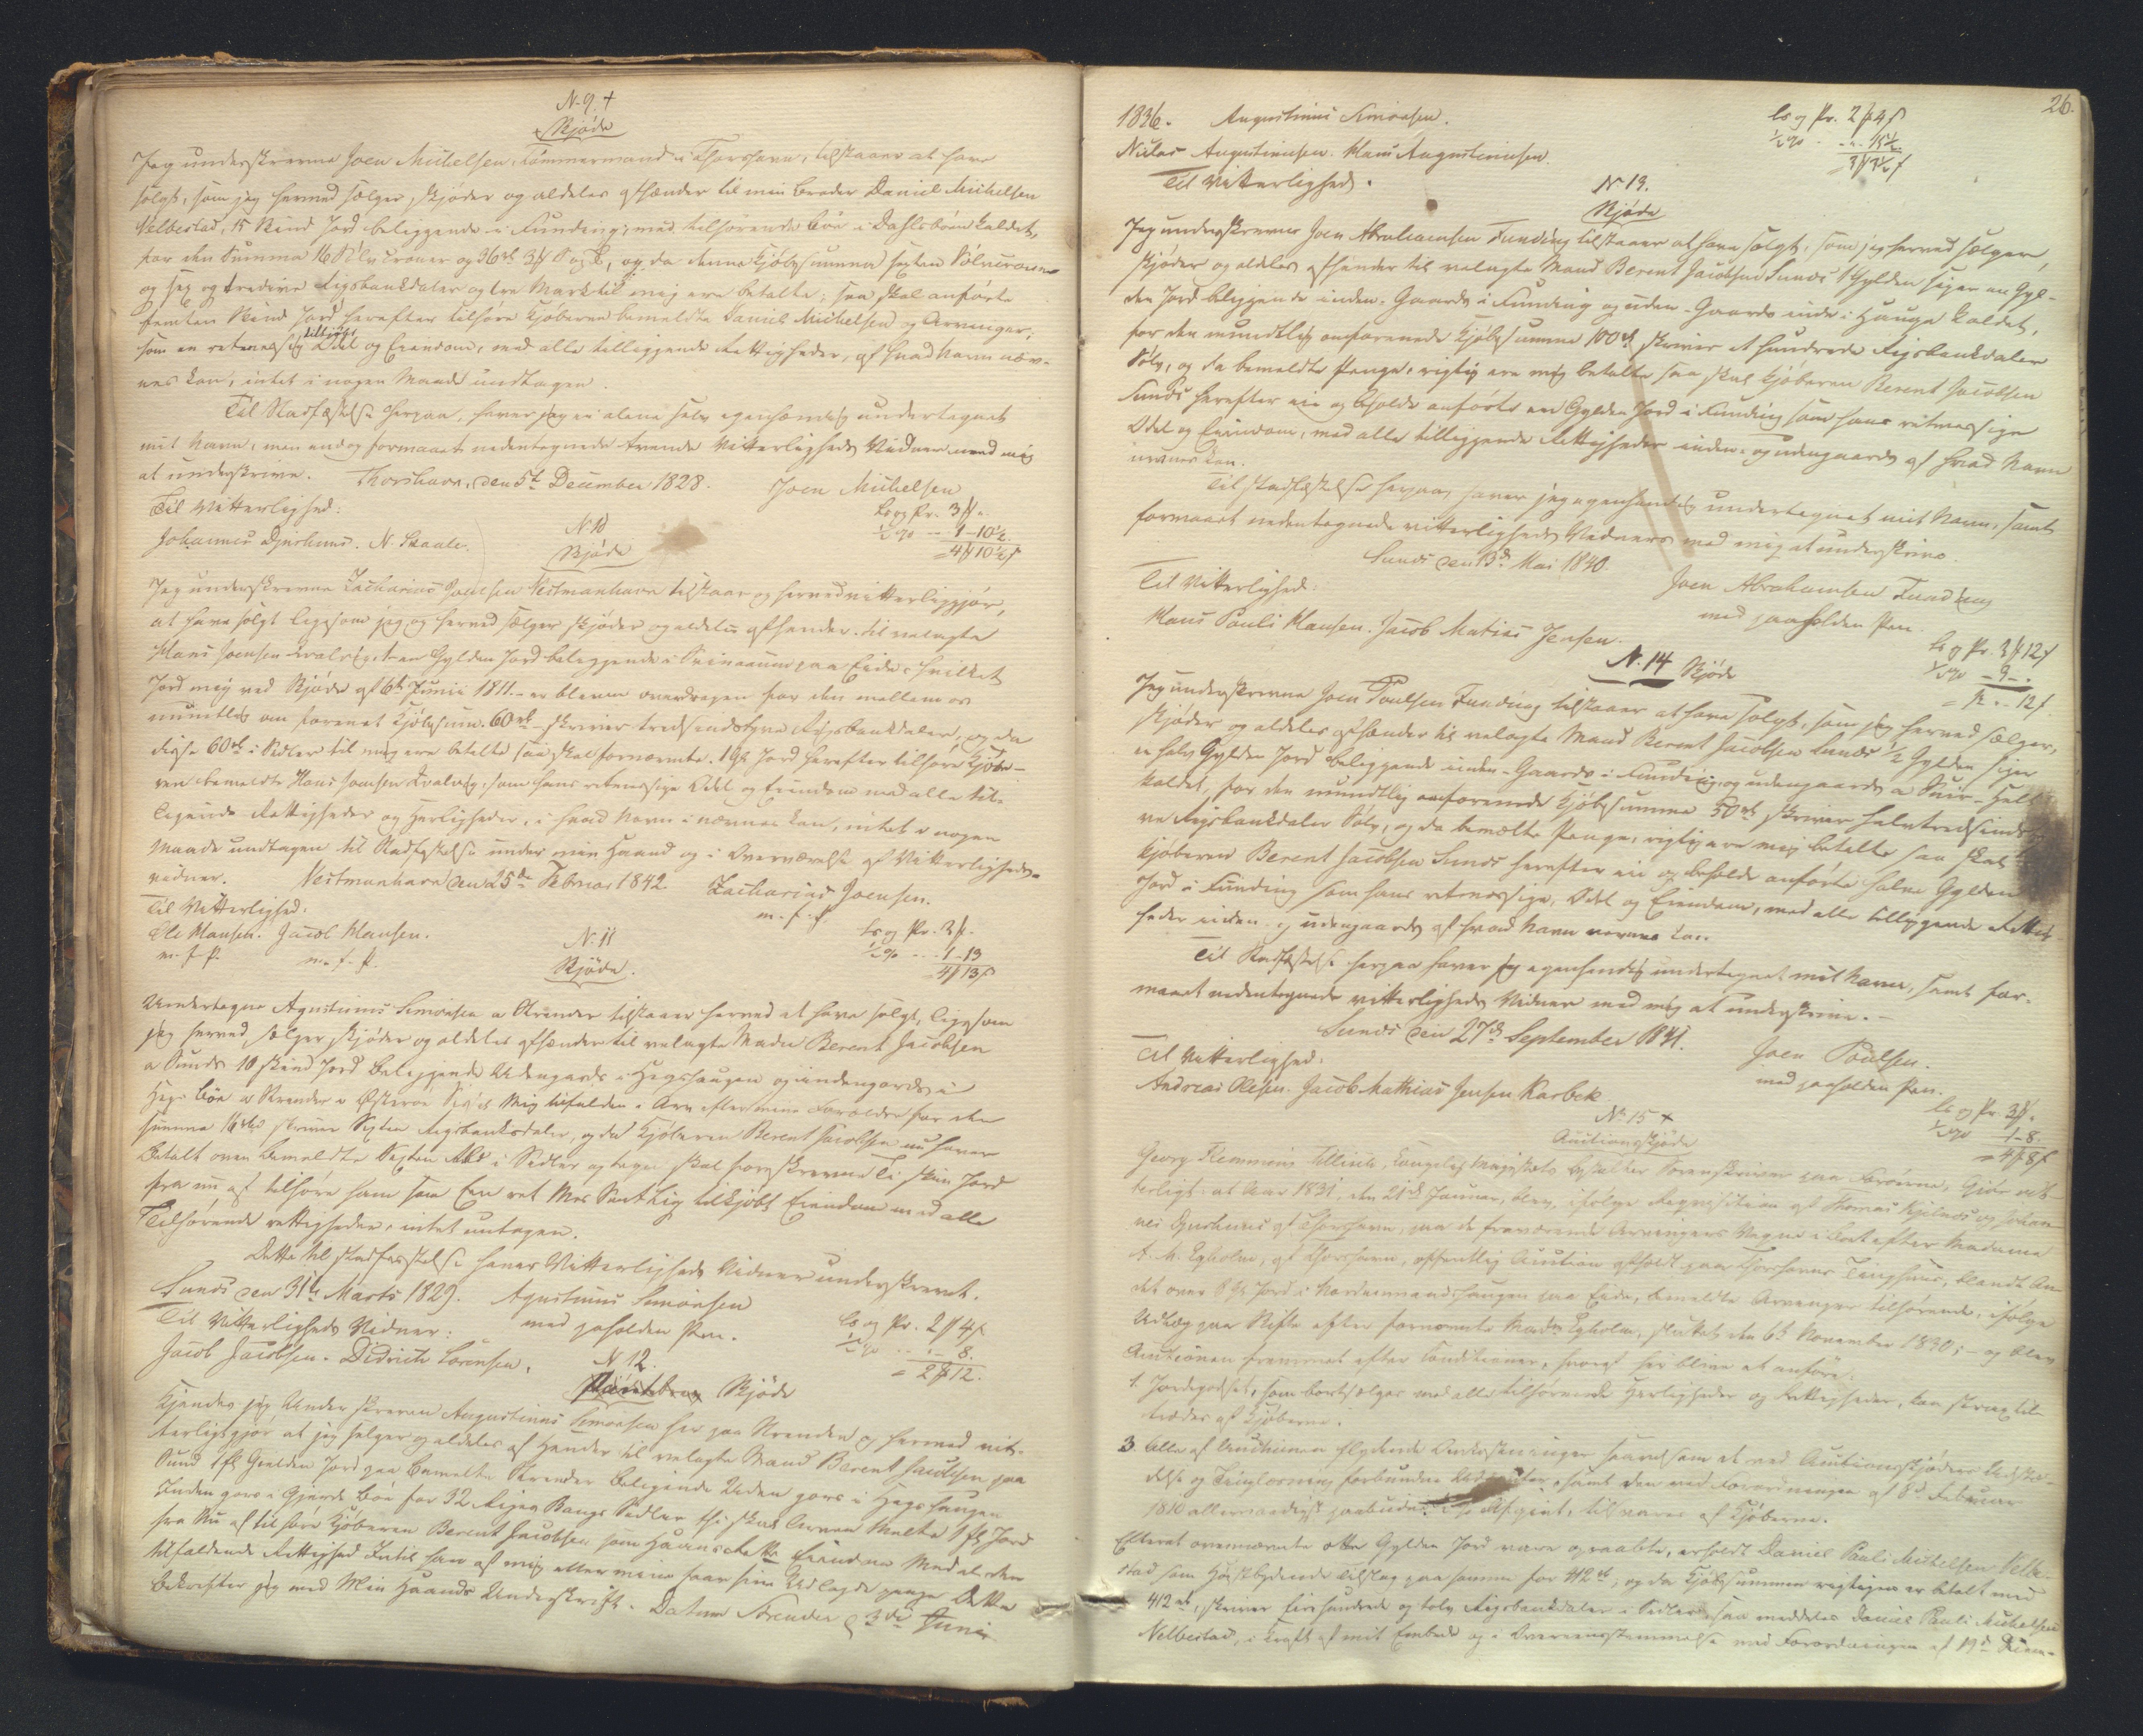 N. 9. +
Skjøde
Jeg underskrevne Joen Michelsen, Tømmermand i Thorshavn, tilstaaer at have
solgt, som jeg hermed sælger, skjøder og aldeles afhænder til min Broder Daniel Michelsen
Velbestad, 15 Skind Jord beliggende i Funding, med tilhørende Bøe i Dahlsbøen kaldet,
for den Summa 16 Sølv Croner og 36 rb 3 # S og T, og da denne Kjøbesumma sexten Sølvcroner
og sex og tredive Rigsbankdaler og tre Mark til mig ere betalte; saa skal anførte
femten Skind Jord herefter tilhøre Kjøberen bemeldte Daniel Michelsen og Arvinger,
som en retmæssig Odel og Eiendom, med alle tilliggende Rettigheder, af hvad Navn næv-
nes kan, intet i nogen Maade undtagen.
Til Stadfæstelse herpaa, haver jeg ei alene selv egenhændig undertegnet
mit Navn, men endog formaaet nedentegnede tvende Vitterligheds Vidner med mig
at underskrive. Thorshavn, den 5te December 1828. Joen Michelsen
Til Vitterlighed:
Johannes Djurhuus. N. Skaale.
Ls og Pr. 3 # „
½ % -- 1-10½
= 4 # 10½ s
N. 10
Skjøde
Jeg underskrevne Zacharias Joensen Vestmanhavn tilstaar og hermed vitterliggjør,
at have solgt ligesom jeg og hermed sælger skjøder og aldeles afhænder til velagte
Hans Joensen Qvalvig, 1 en Gylden Jord beliggende i paa Eide, hvilket
Jord mig ved Skjøde af 6te Junii 1811 - er bleven overdragen for den mellem os
mundtlig om forenet Kjøbesum 60 rb - skriver tresindstyve Rigsbankdaler, og da
disse 60 rb i Sedler til mig ere betalte saa skal fornævnte 1 Gl. Jord herefter tilhøre Kjøbe-
ren bemeldte Hans Joensen Qvalvig, som hans retmæssige Odel og Eiendom med alle til-
liggende Rettigheder og Herligheder, i hvad Navn i nævnes kan, intet i nogen
Maade undtagen til Stadfæstelse under min Haand og i Overværelse af Vitterligheds-
vidner. Vestmanhavn den 25de Februar 1842. Zacharias Joensen.
m. f. P.
Til Vitterlighed.
Ole Hansen. Jacob Hansen.
m. f. P. m. f. P.
Ls og Pr. 3 #.
½ % -- 1-13
4 # 13 s
N. 11
Skjøde.
Undertegne Agustinus Simonsen a Strender tilstaaer herved at have solgt, ligesom
jeg herved, sælger skjøder og aldeles afhænder til velagte Mand Berent Jacobsen
a Sunde 10 Skind Jord beliggende Udengards i Hegshaugen og indengards i
Hegs Bøe a Strender i Østeroe mig tilfalden i Arv efter mine Forældre for den
Summa 16 rbd skriver Sexten Rigsbanksdaler, og da Kjøberen Berent Jacobsen nu haver
Betalt oven Bemeldte Sexten Rbd i Sedler og tegn skal foreskrevne Ti Skin Jord
fra nu af tilhøre ham som Een ret Mes Sentlig tilkjøbt Eiendom med alle
Tilhørende rettigheder, intet untagen.
Dette til stadfæstelse haver Vitterligheds Vidner underskrevet.
Sunds den 31te Marts 1829. Agustinus Simonsen
med paholden Pen.
Til Vitterligheds Vidner:
Jacob Jacobsen. Didrich Sørensen.
Ls og Pr. 2 # 4 s
½ % .. „ - 8.
= 2 # 12.
N. 12.
Pantebrev Skjøde
Kjendes jeg Under skreven Augustinus Simonsen her paa Strender og hermed vit-
terligtgjør at jeg selger og aldeles af Hender til velagte Mand Berent Jacobsen paa
Sund 1 Gylden Jord paa Bemelte Strender beligende Uden gars i Hegs haugen
Inden gars i Gjerde Bøe for 32 Riges Bangs Sedler thi skal oven Melte 1 Gl Jord
fra Nu af til høre Kjøberen Berent Jacobsen som Haans Rette Eiendom Med al den
tilfaldende Rettighed Indtil han af mig eller mine faar sine Udlagde penge Dette
bekrefter jeg med Min Haands Underskrift. Datum Strender d 3de Junii
26.
1836. Augustinus Simonsen.
Niclas Augustinusen. Hans Augustinusen.
Til Vitterlighed.
Ls og Pr. 2 # 4 s
½ % . - „ 15½
= 3 # 3½ s
N. 13.
Skjøde
Jeg underskrevne Joen Abrahamsen Funding tilstaaer at have solgt, som jeg herved sælger,
skjøder og aldeles afhænder til velagte Mand Berent Jacobsen Sunds 1 Gylden siger en Gyl-
den Jord beliggende inden-Gaards i Funding og uden-Gaards inde i Hauge kaldet,
for den mundtlig omforenede Kjøbesumma 100 rb skriver et hundrede Rigsbankdaler
Sølv, og da bemeldte Penge, rigtig ere mig betalte saa skal Kjøberen Berent Jacobsen
Sunds herefter eie og beholde anførte en Gylden Jord i Funding som hans retmessige
Odel og Eiendom, med alle tilliggende Rettigheder inden- og udengaards af hvad Navn
nævnes kan.
Til Stadfæstelse herpaa, haver jeg egenhændig undertegnet mit Navn, samt
formaaet nedentegnede vitterligheds Vidner med mig at underskrive.
Sunds den 13de Mai 1840. Joen Abrahamsen Funding
med paaholden Pen.
Til Vitterlighed:
Hans Pauli Hansen. Jacob Matias Jensen.
Ls og Pr. 3 # 12 s
½ % - 9 - .
N. 14 Skjøde
Jeg underskrevne Joen Poulsen Funding tilstaaer at have solgt, som jeg herved sælger,
skjøder og aldeles afhænder til velagte Mand Berent Jacobsen Sunds ½ Gylden siger
en halv Gylden Jord beliggende inden-Gaards i Funding, og udengaards a
kaldet, for den mundtlig omforenede Kjøbesumma 50 rb skriver halvtredsindsty-
ve Rigsbankdaler Sølv, og da bemelte Penge, rigtig ere mig betalte saa skal
Kjøberen Berent Jacobsen Sunds herefter eie og beholde anførte halve Gylden
Jord i Funding som hans retmessige, Odel og Eiendom, med alle tilliggende Rettig-
heder inden- og udengaards af hvad Navn nævnes kan.
Til Stadfæstelse herpaa haver jeg egenhændig undertegnet mit Navn, samt for-
maaet nedentegnede vitterligheds Vidner med mig at underskrive. -
Sunds den 27de September 1841. Joen Poulsen.
med paaholden Pen.
Til Vitterlighed:
Andreas Olesen. Jacob Mathias Jensen Karbek
Ls og Pr. 3 #.
½ % 1-8.
= 4 # 8 s
No 15 +
Auctionsskjøde
Georg Flemming Tillisch, Kongelig Majestæts bestalter Sorenskriver paa Færøerne, Gjør vit-
terligt: at Aar 1831, den 21de Januar, blev, ifølge Requisition af Thomas og Johan-
nes Djurhuus af Thorshavn, paa de fraværende Arvingers Vegne i Boet efter Madame
A. M. Egholm, af Thorshavn, offentlig Auction afholdt paa Thorshavns Tinghuus, blandt An-
det over 8 Gl. Jord i paa Eide, bemeldte Arvinger tilhørende, ifølge
Udlæg paa Skifte efter fornævnte Mad. Egholm, sluttet den 6te November 1830; - og blev
Auctionen fremmet efter Conditioner, hvoraf her blive at anføre:
1. Jordegodset, som bortsælges med alle tilhørende Herligheder og Rettigheder, kan strax til-
trædes af Kjøberne.
3 Alle af Auctionen flydende Omkostninger saavelsom et ved Auctionsskjøders Udste-
delse og Tinglæsning forbundne samt den ved Forordningen af 8de Februar
1810 allernaadigst paabudne ½ % Afgivt, tilsvares af Kjøberne.
Efterat ovennævnte otte Gylden Jord vare opraabte, erholdt Daniel Pauli Michelsen Velbe-
stad som Høistbydende Tilslag paa samme for 412 rb, og da Kjøbesummen rigtigen er betalt med
412 rb, skriver fire hundrede og tolv Rigsbankdaler i Sedler, saa meddeles Daniel Pauli Michelsen
Velbestad, i Kraft af mit Embede og i Overeensstemmelse med Forordningen af 19de